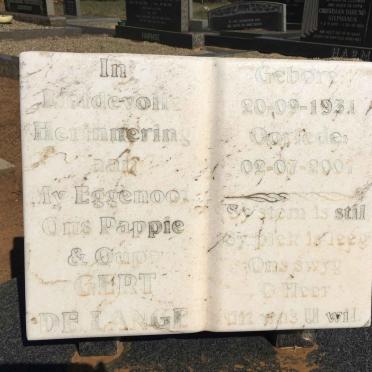 In
Liefdevolle
Herinnering
aan
My Eggenoot
Ons Pappie
& Oupa
GERT
DE LANGE
Gebore
20-09-1931
Oorlede:
02-07-2001
Sy stem is stil
Sy plek is leeg
Ons swyg
O Heer
dit was U wil